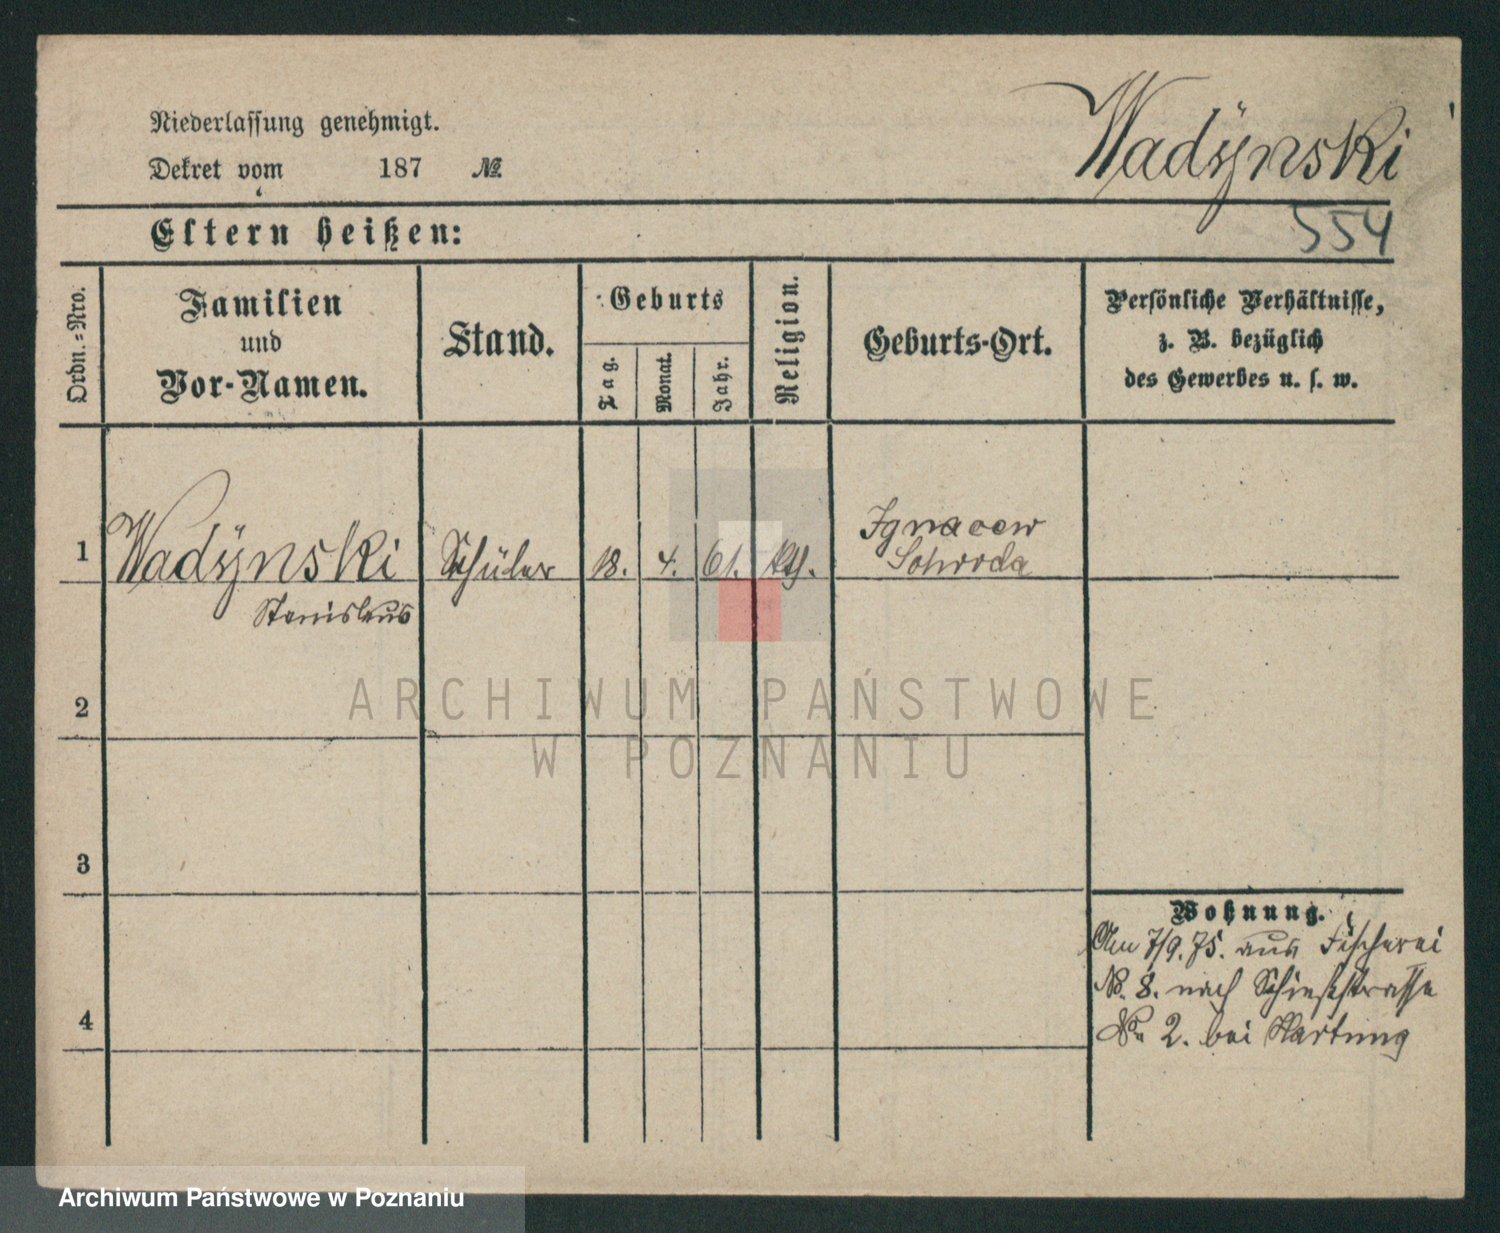 Niederlassung genehmigt.
Wadÿnski
Dekret vom 187 №
554
Eltern heißen:
Ordn.=Nro.
Familien
und
Vor-Namen.
Stand.
Geburts
Tag.
Monat.
Jahr.
Religion.
Geburts-Ort.
Persönliche Verhältnisse,
z. B. bezüglich
des Gewerbes u. s. w.
1 Wadÿnski Schüler 18. 4. 61. kth. Ignacew
Stanislaus
2
3
4
Wohnung.
Am 7/9. 75. aus Fischerei
No. 8. nach Schießstrasse
No 2. bei Hartung
ARCHIWUM PAŃSTWOWE
W POZNANIU
Archiwum Państwowe w Poznaniu